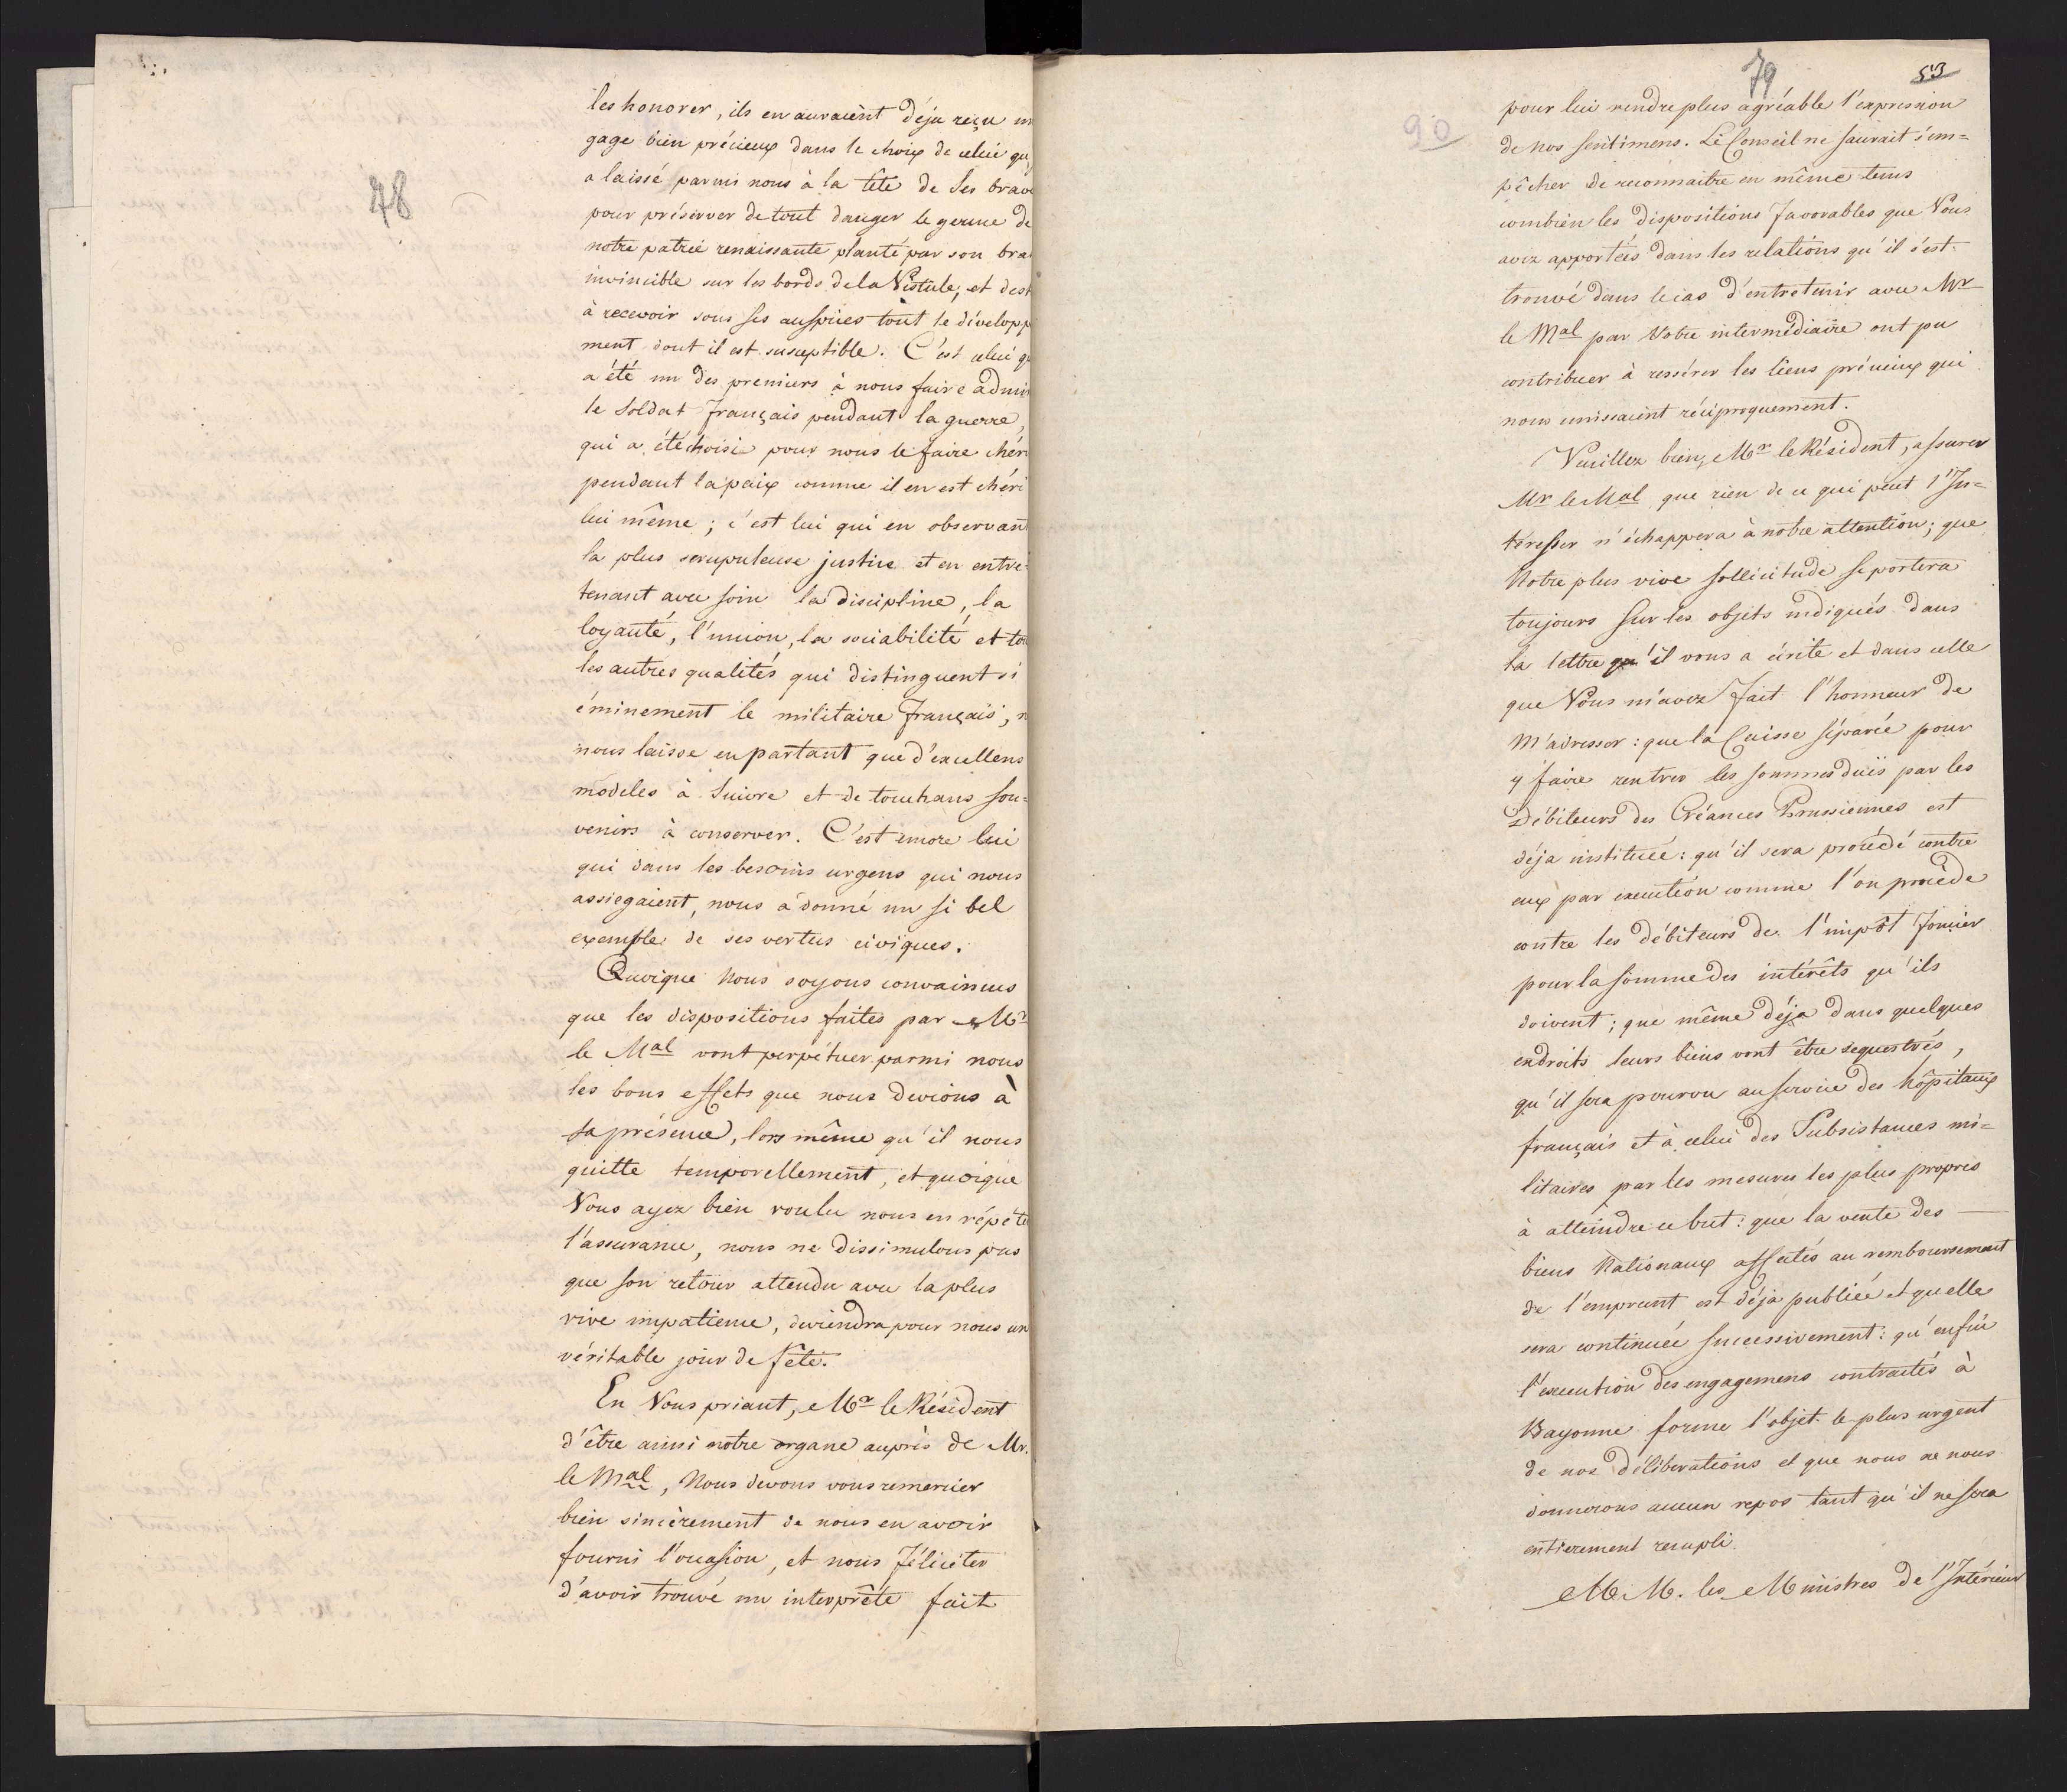 78
les honorer, ils en auraient déja reçu un
gage bien précieux dans le choix de celui qu
a laissé parmi nous à la tête de ses brave
pour préserver de tout danger le germe de
notre patrie renaissante planté par son bra
invincible sur les bords de la Vistule, et dest
à recevoir sous ses auspices tout le développ
ment dont il est susceptible. C'est celui qu
a été un des premiers à nous faire admir
le Soldat français pendant la guerre,
qui a été choisi pour nous le faire chéri
pendant la paix comme il en est chéri
lui même; c'est lui qui en observant
la plus scrupuleuse justice et en entre-
tenant avec soin la discipline, la
loyauté, l'union, la sociabilité et tou
les autres qualités qui distinguent si
éminement le militaire français, n
nous laisse en partant que d'excellens
modeles à suivre et de touchans sou=
venirs à conserver. C'est encore lui
qui dans les besoins urgens qui nous
assiegaient, nous a donné un si bel
exemple de ses vertus civiques.
Quoique Nous soyons convaincus
que les dispositions faites par Mr
le Mal vont perpétuer parmi nous
les bons effets que nous devions à
sa présence, lors même qu'il nous
quitte temporellement, et quoique
Vous ayez bien voulu nous en répéte
l'assurance, nous ne dissimulons pas
que son retour attendu avec la plus
vive impatience, deviendra pour nous un
véritable jour de fête.
En Vous priant, Mr le Résident
d'être ainsi notre organe auprès de Mr.
le Mal, Nous devons vous remercier
bien sincèrement de nous en avoir
fourni l'occasion, et nous féliciter
d'avoir trouvé un interprête fait
79
53
90
pour lui rendre plus agréable l'expression
de nos sentimens. Le Conseil ne saurait s'em=
pêcher de reconnaitre en même tems
combien les dispositions favorables que Vous
avez apportées dans les relations qu'il s'est
trouvé dans le cas d'entretenir avec Mr
le Mal par Votre intermédiaire ont pu
contribuer à resserer les liens précieux qui
nous unissaient réciproquement.
Veuillez bien, Mr le Résident, assurer
Mr le Mal que rien de ce qui peut l'In=
téresser n'échappera à notre attention; que
Notre plus vive sollicitude se portera
toujours sur les objets indiqués dans
la lettre qu'il vous a écrite et dans celle
que Vous m'avez fait l'honneur de
m'adresser: que la Caisse séparée pour
y faire rentrer les sommes dues par les
Débiteurs des Créances Prussiennes est
déja instituée: qu'il sera procédé contre
eux par execution comme l'on procède
contre les débiteurs de l'impôt foncier
pour la somme des intérêts qu'ils
doivent; que même déja dans quelques
endroits leurs biens vont être sequestrés,
qu'il sera pourvu au service des hôpitaux
français et à celui des Subsistances mi=
litaires par les mesures les plus propres
à atteindre ce but: que la vente des
biens Nationaux affectés au remboursement
de l'emprunt est déja publiée et quelle
sera continuée successivement: qu'enfin
l'execution des engagemens contractés à
Bayonne forme l'objet le plus urgent
de nos déliberations et que nous ne nous
donnerons aucun repos tant qu'il ne sera
entierement rempli.
M.M. les Ministres de l'Intérieur